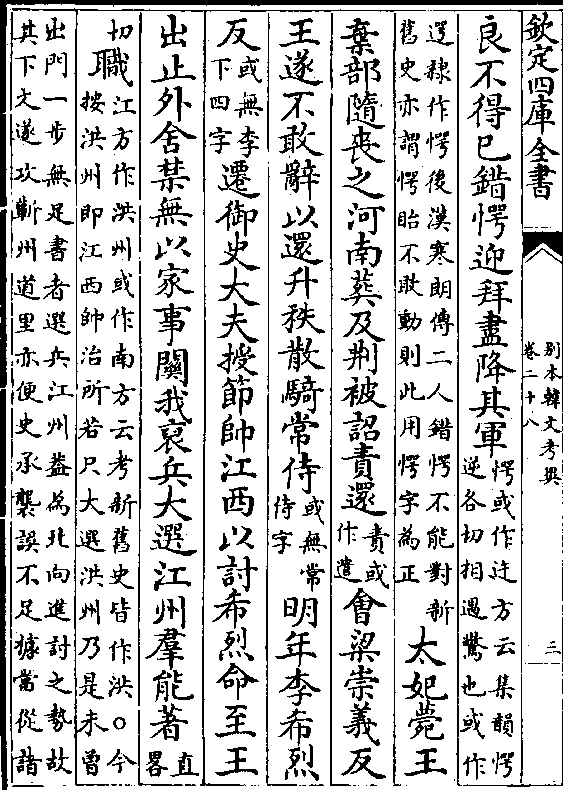 欽定四庫全書
別本韓文考異
卷二十八
三
良不得已錯愕迎拜盡降其軍愕或作迕方云集韻愕
逆各切相遇驚也或作
遌隸作愕後漢寒朗傳二人錯愕不能對新
舊史亦謂愕眙不敢動則此用愕字為正太妃薨王
棄部隨喪之河南葬及荆被詔責還責或
作遣會梁崇義反
王遂不敢辭以還升秩散騎常侍或無常
侍字明年李希烈
反或無李
下四字遷御史大夫授節帥江西以討希烈命至王
出止外舍禁無以家事關我裒兵大選江州羣能著直
畧
切職江方作洪州或作南方云考新舊史皆作洪○今
按洪州即江西帥治所若只大選洪州乃是未曾
出門一步無足書者選兵江州葢為北向進討之勢故
其下文遂攻蘄州道里亦便史承襲誤不足據當從諸